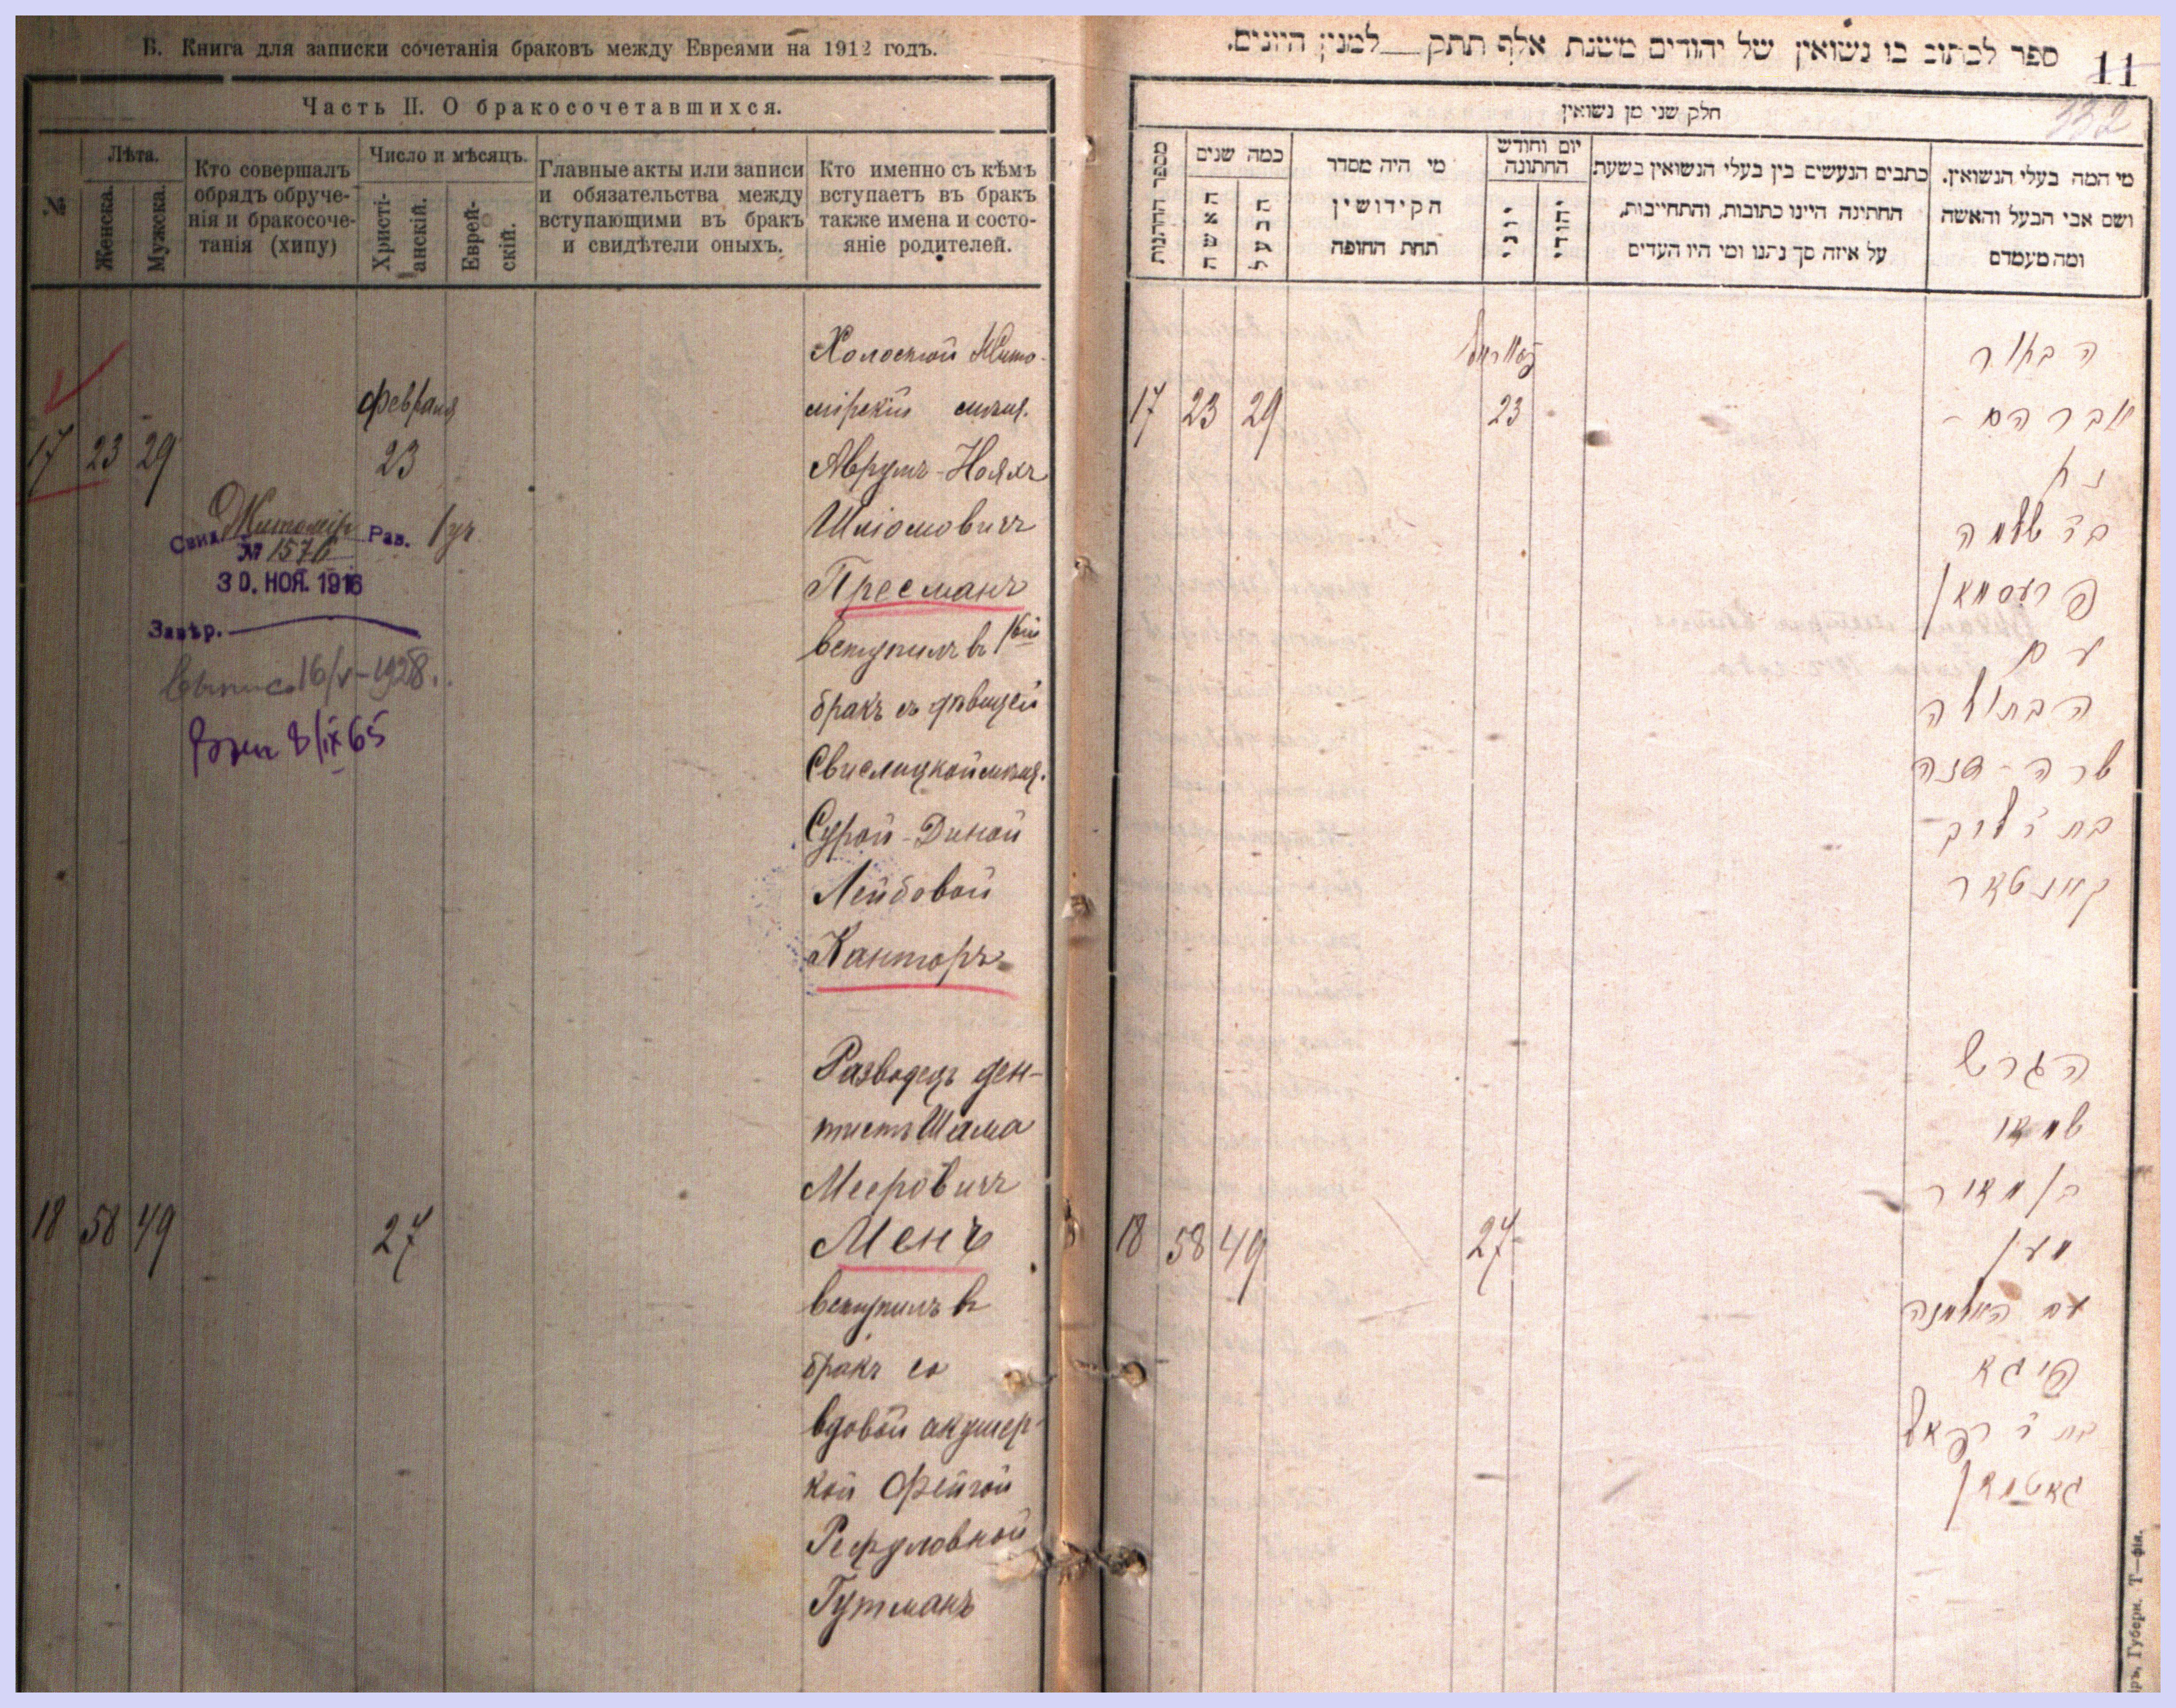 Б. Книга для записки сочетанія браковъ между Евреями на 1912 годъ.
Часть II. О бракосочетавшихся.
№
Лѣта.
Женска.
Мужска.
Кто совершалъ
обрядъ обруче-
нія и бракосоче-
танія (хипу)
Число и мѣсяцъ.
Христі-
анскій.
Еврей-
скій.
Главные акты или записи
и обязательства между
вступающими въ бракъ
и свидѣтели оныхъ.
Кто именно съ кѣмъ
вступаетъ въ бракъ
также имена и состо-
яніе родителей.
17 23 29
февраля
23
Свид. Житомір Рав.
№ 1576
30. НОЯ. 1916
Завѣр.
16/V-1928.
8/IX 65
Холостой Жито-
мірскій мѣщ.
Аврумъ-Нояхъ
Шліомовичъ
Пресманъ
вступилъ въ 1ый
бракъ съ дѣвицей
Свислоцкой мѣщ.
Сурой-Диной
Лейбовой
Канторъ
18 58 49
27
Разводецъ ден-
тистъ Шама
Мееровичъ
Менъ
вступилъ въ
бракъ со
вдовой акушер-
кой Фейгой
Рефуловной
Гутманъ
ספר לכתוב בו נשואין של יהודים משנת אלף תתק למנין היונים.
11
332
חלק שני מן נשואין
מספר החתונות
כמה שנים
האשה
הבעל
מי היה מסדר
הקידושין
תחת החופה
יום וחודש
החתונה
יוני
יהודי
כתבים הנעשים בין בעלי הנשואין בשעת
החתונה היינו כתובות, והתחייבות,
על איזה סך נתנו ומי היו העדים
מי המה בעלי הנשואין.
ושם אבי הבעל והאשה
ומה מעמדם
17 23 29
פעווראל
23
הבחור
אברהם -
נח
בר שלמה
פרעסמאן
עם
הבתולה
שרה - דינה
בת ר' ליב
קאנטאר
18 58 49
27
הגרש
שמאי
בן מאיר
מען
עם האלמנה
פייגא
בת ר' רפאל
גאטמאן
Губерн. Т—фія.